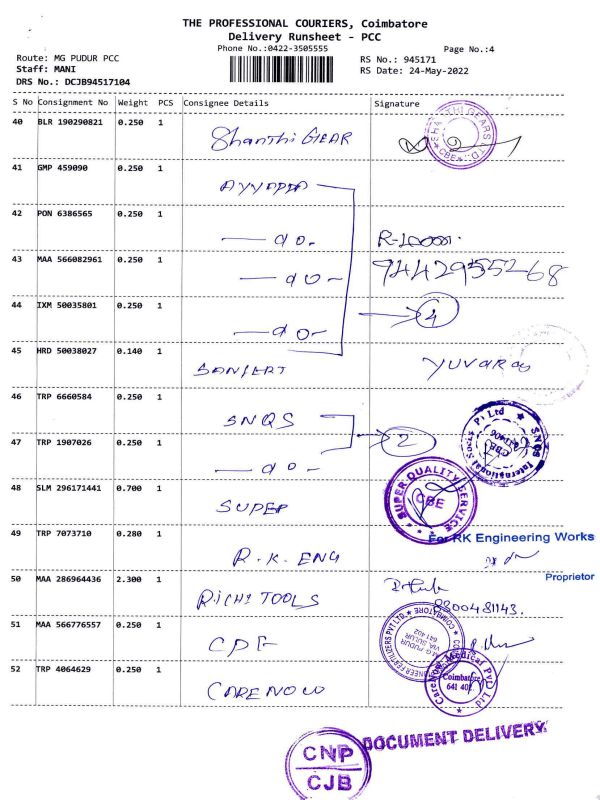 THE PROFESSIONAL COURIERS, Coimbatore
Delivery Runsheet - PCC
Phone No.:0422-3505555
Page No.:4
Route: MG PUDUR PCC
RS No.: 945171
Staff: MANI
RS Date: 24-May-2022
DRS No.: DCJB94517104
S No Consignment No Weight PCS Consignee Details Signature
40 BLR 190290821 0.250 1 Shanthi GEAR
SHANTHI GEARS LTD. CBE
41 GMP 459090 0.250 1 AYYAPPA
42 PON 6386565 0.250 1 — do -
43 MAA 566082961 0.250 1 — do - 9442955268
44 IXM 50035801 0.250 1 — do - 4
45 HRD 50038027 0.140 1 YUVARAJ
46 TRP 6660584 0.250 1 SNQS
47 TRP 1907026 0.250 1 — do - 2
SNQS International Socks P Ltd
CBE
48 SLM 296171441 0.700 1 SUPER
SUPER QUALITY SERVICE
CBE
49 TRP 7073710 0.280 1 R.K. ENG
For RK Engineering Works
Proprietor
50 MAA 286964436 2.300 1 RICHI TOOLS
8300481143.
51 MAA 566776557 0.250 1
COIMBATORE
M.G. PUDUR
VIA SULUR
641 402
52 TRP 4064629 0.250 1 CARENOW
CareNow Medical Pvt Ltd
Coimbatore
641 402.
DOCUMENT DELIVERY
CNP
CJB